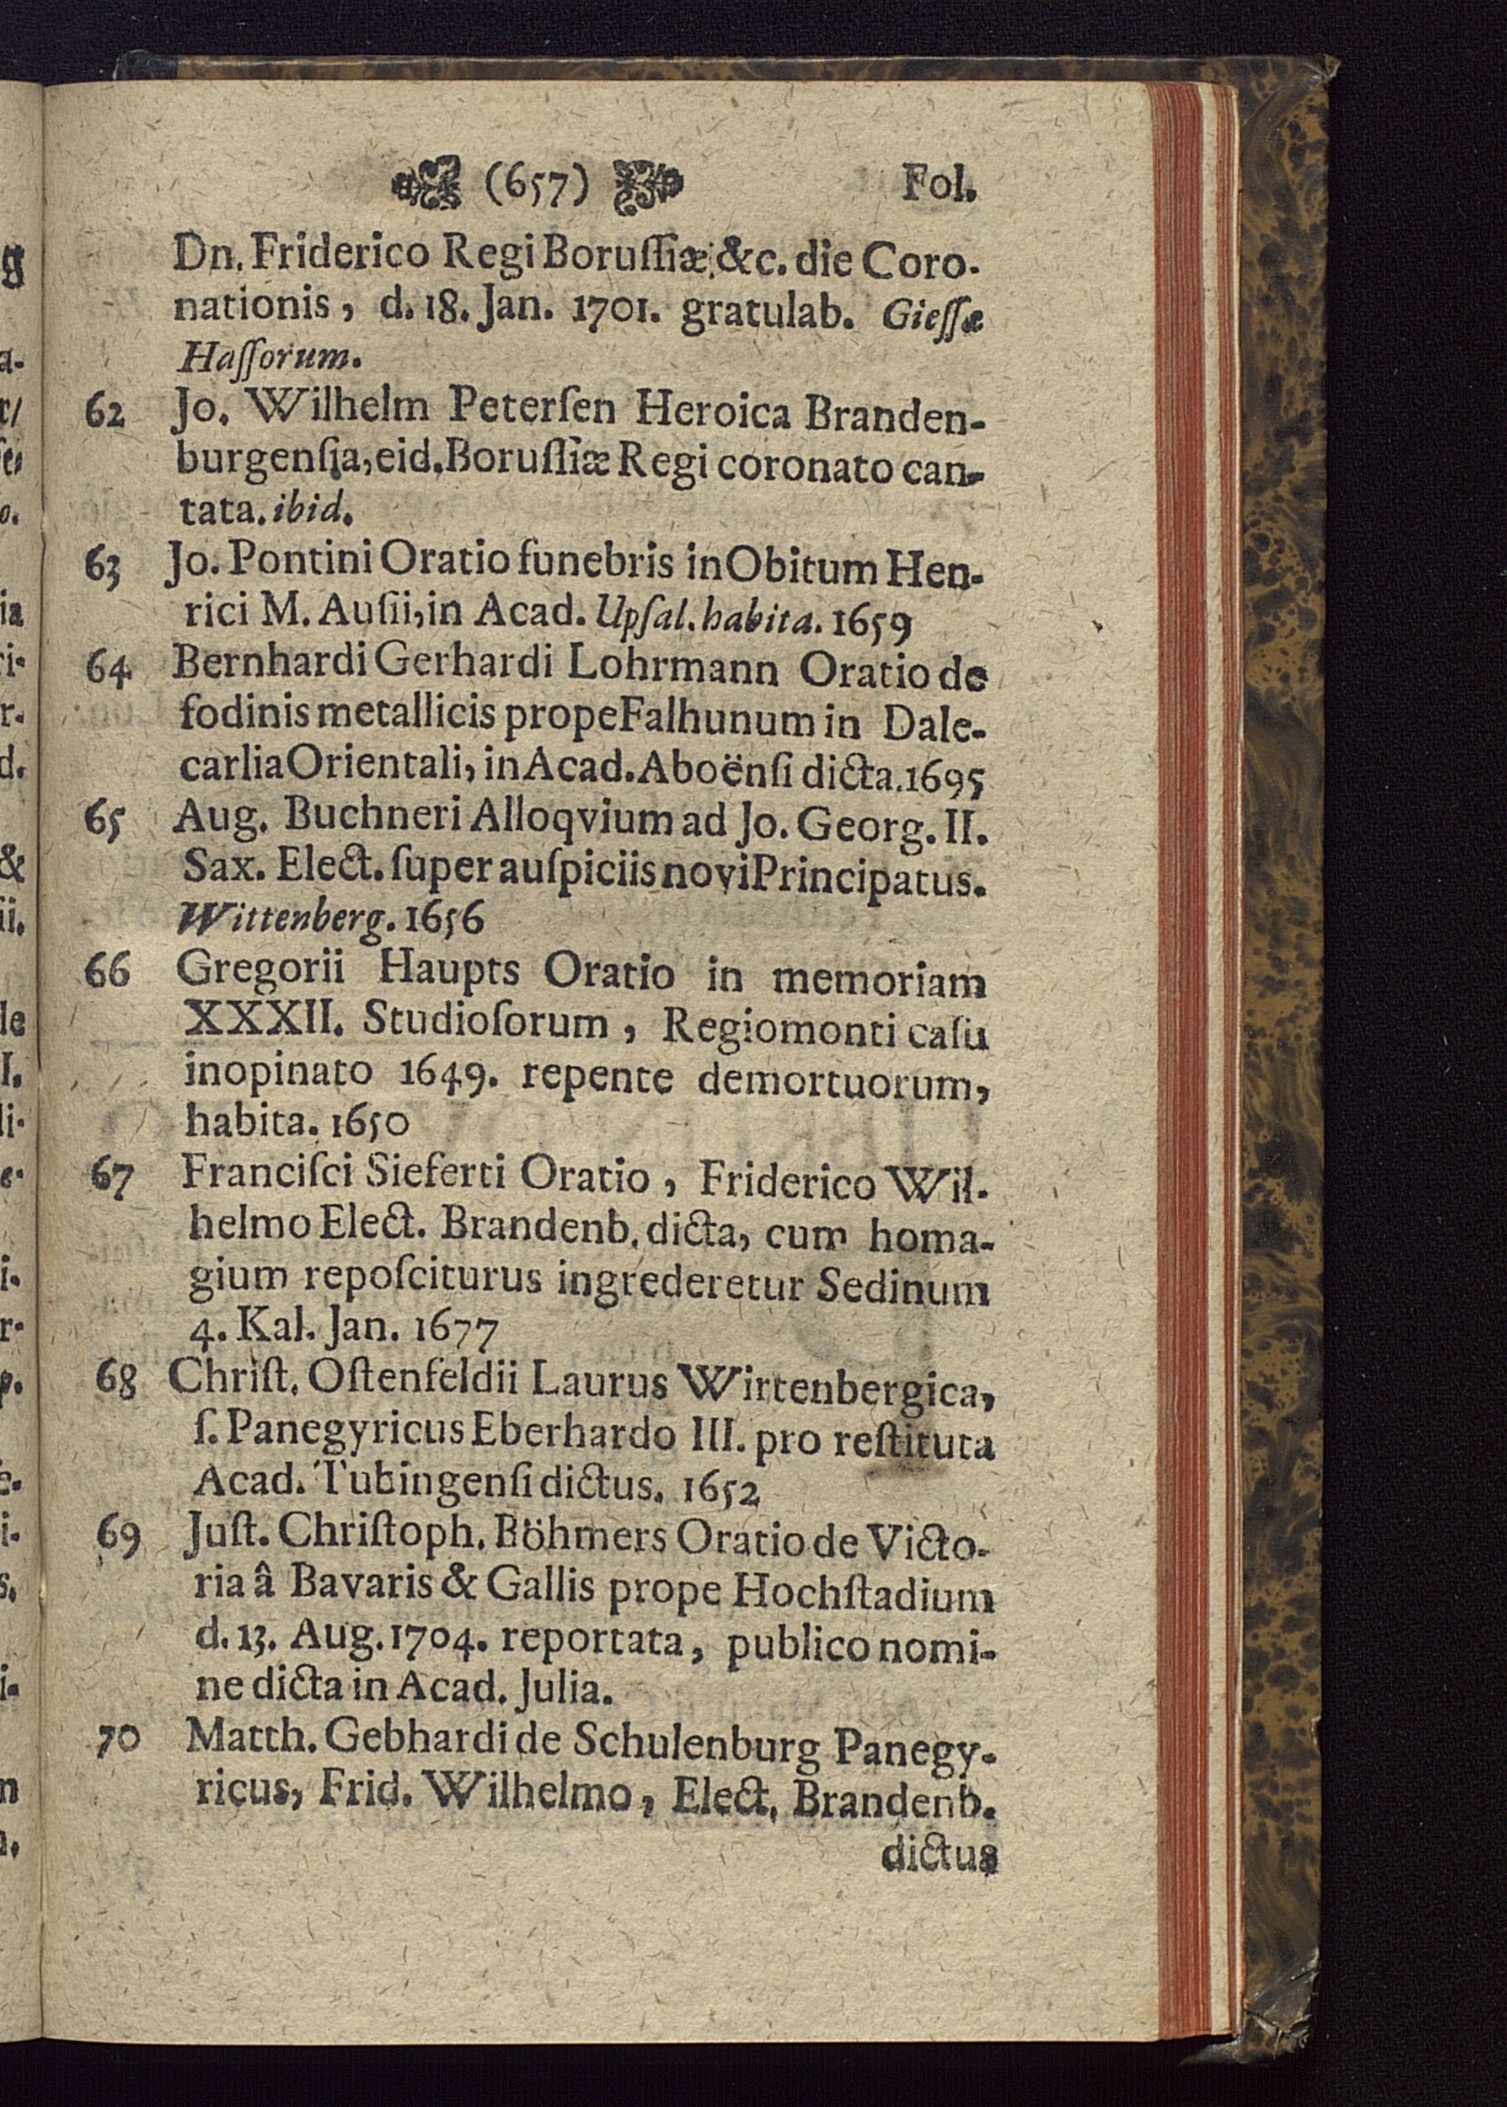 (657) Fol.
Dn. Friderico Regi Boruſſiæ, &c. die Coro-
nationis, d. 18. Jan. 1701. gratulab. Gieſſæ
Haſſorum.
62 Jo. Wilhelm Peterſen Heroica Branden-
burgenſia, eid. Boruſſiæ Regi coronato can-
tata. ibid.
63 Jo. Pontini Oratio funebris in Obitum Hen-
rici M. Auſii, in Acad. Upſal. habita. 1659
64 Bernhardi Gerhardi Lohrmann Oratio de
fodinis metallicis prope Falhunum in Dale-
carlia Orientali, in Acad. Aboënſi dicta. 1695
65 Aug. Buchneri Alloqvium ad Jo. Georg. II.
Sax. Elect. ſuper auſpiciis novi Principatus.
Wittenberg. 1656
66 Gregorii Haupts Oratio in memoriam
XXXII. Studioſorum, Regiomonti caſu
inopinato 1649. repente demortuorum,
habita. 1650
67 Franciſci Sieferti Oratio, Friderico Wil-
helmo Elect. Brandenb. dicta, cum homa-
gium repoſciturus ingrederetur Sedinum
4. Kal. Jan. 1677
68 Chriſt. Oſtenfeldii Laurus Wirtenbergica,
ſ. Panegyricus Eberhardo III. pro reſtituta
Acad. Tubingenſi dictus. 1652
69 Juſt. Chriſtoph. Böhmers Oratio de Victo-
ria â Bavaris & Gallis prope Hochſtadium
d. 13. Aug. 1704. reportata, publico nomi-
ne dicta in Acad. Julia.
70 Matth. Gebhardi de Schulenburg Panegy-
ricus, Frid. Wilhelmo, Elect. Brandenb.
dictus